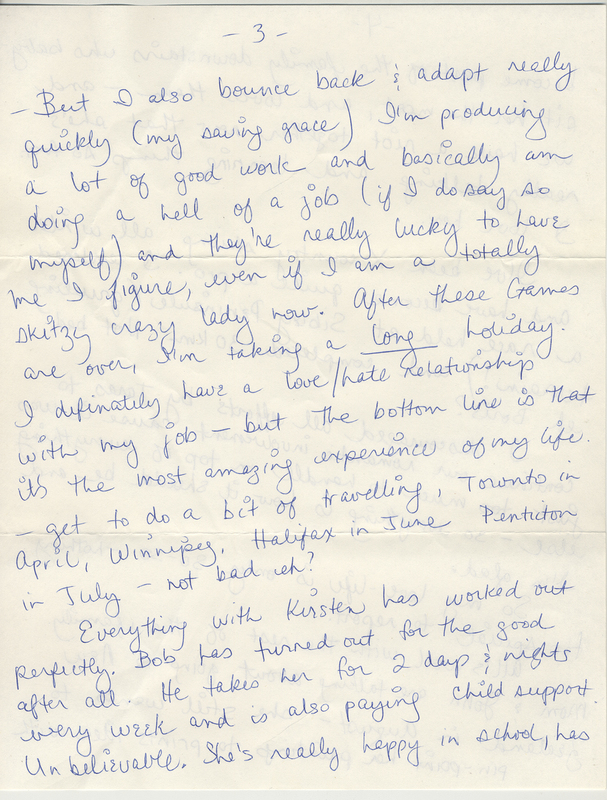 - 3 -
- But I also bounce back & adapt really
quickly (my saving grace) I'm producing
a lot of good work and basically am
doing a hell of a job (if I do say so
myself) and they're really lucky to have
me I figure, even if I am a totally
skitzy crazy lady now. After these Games
are over, I'm taking a long holiday.
I difinately have a love/hate relationship
with my job - but the bottom line is that
it's the most amazing experience of my life.
- get to do a bit of travelling, Toronto in
April, Winnipeg, Halifax in June Pentuton
in July - not bad eh?
Everything with Kirsten has worked out
perfectly. Bob has turned out for the good
after all. He takes her for 2 days & nights
every week and is also paying child support.
Unbelievable. She's really happy in school, has